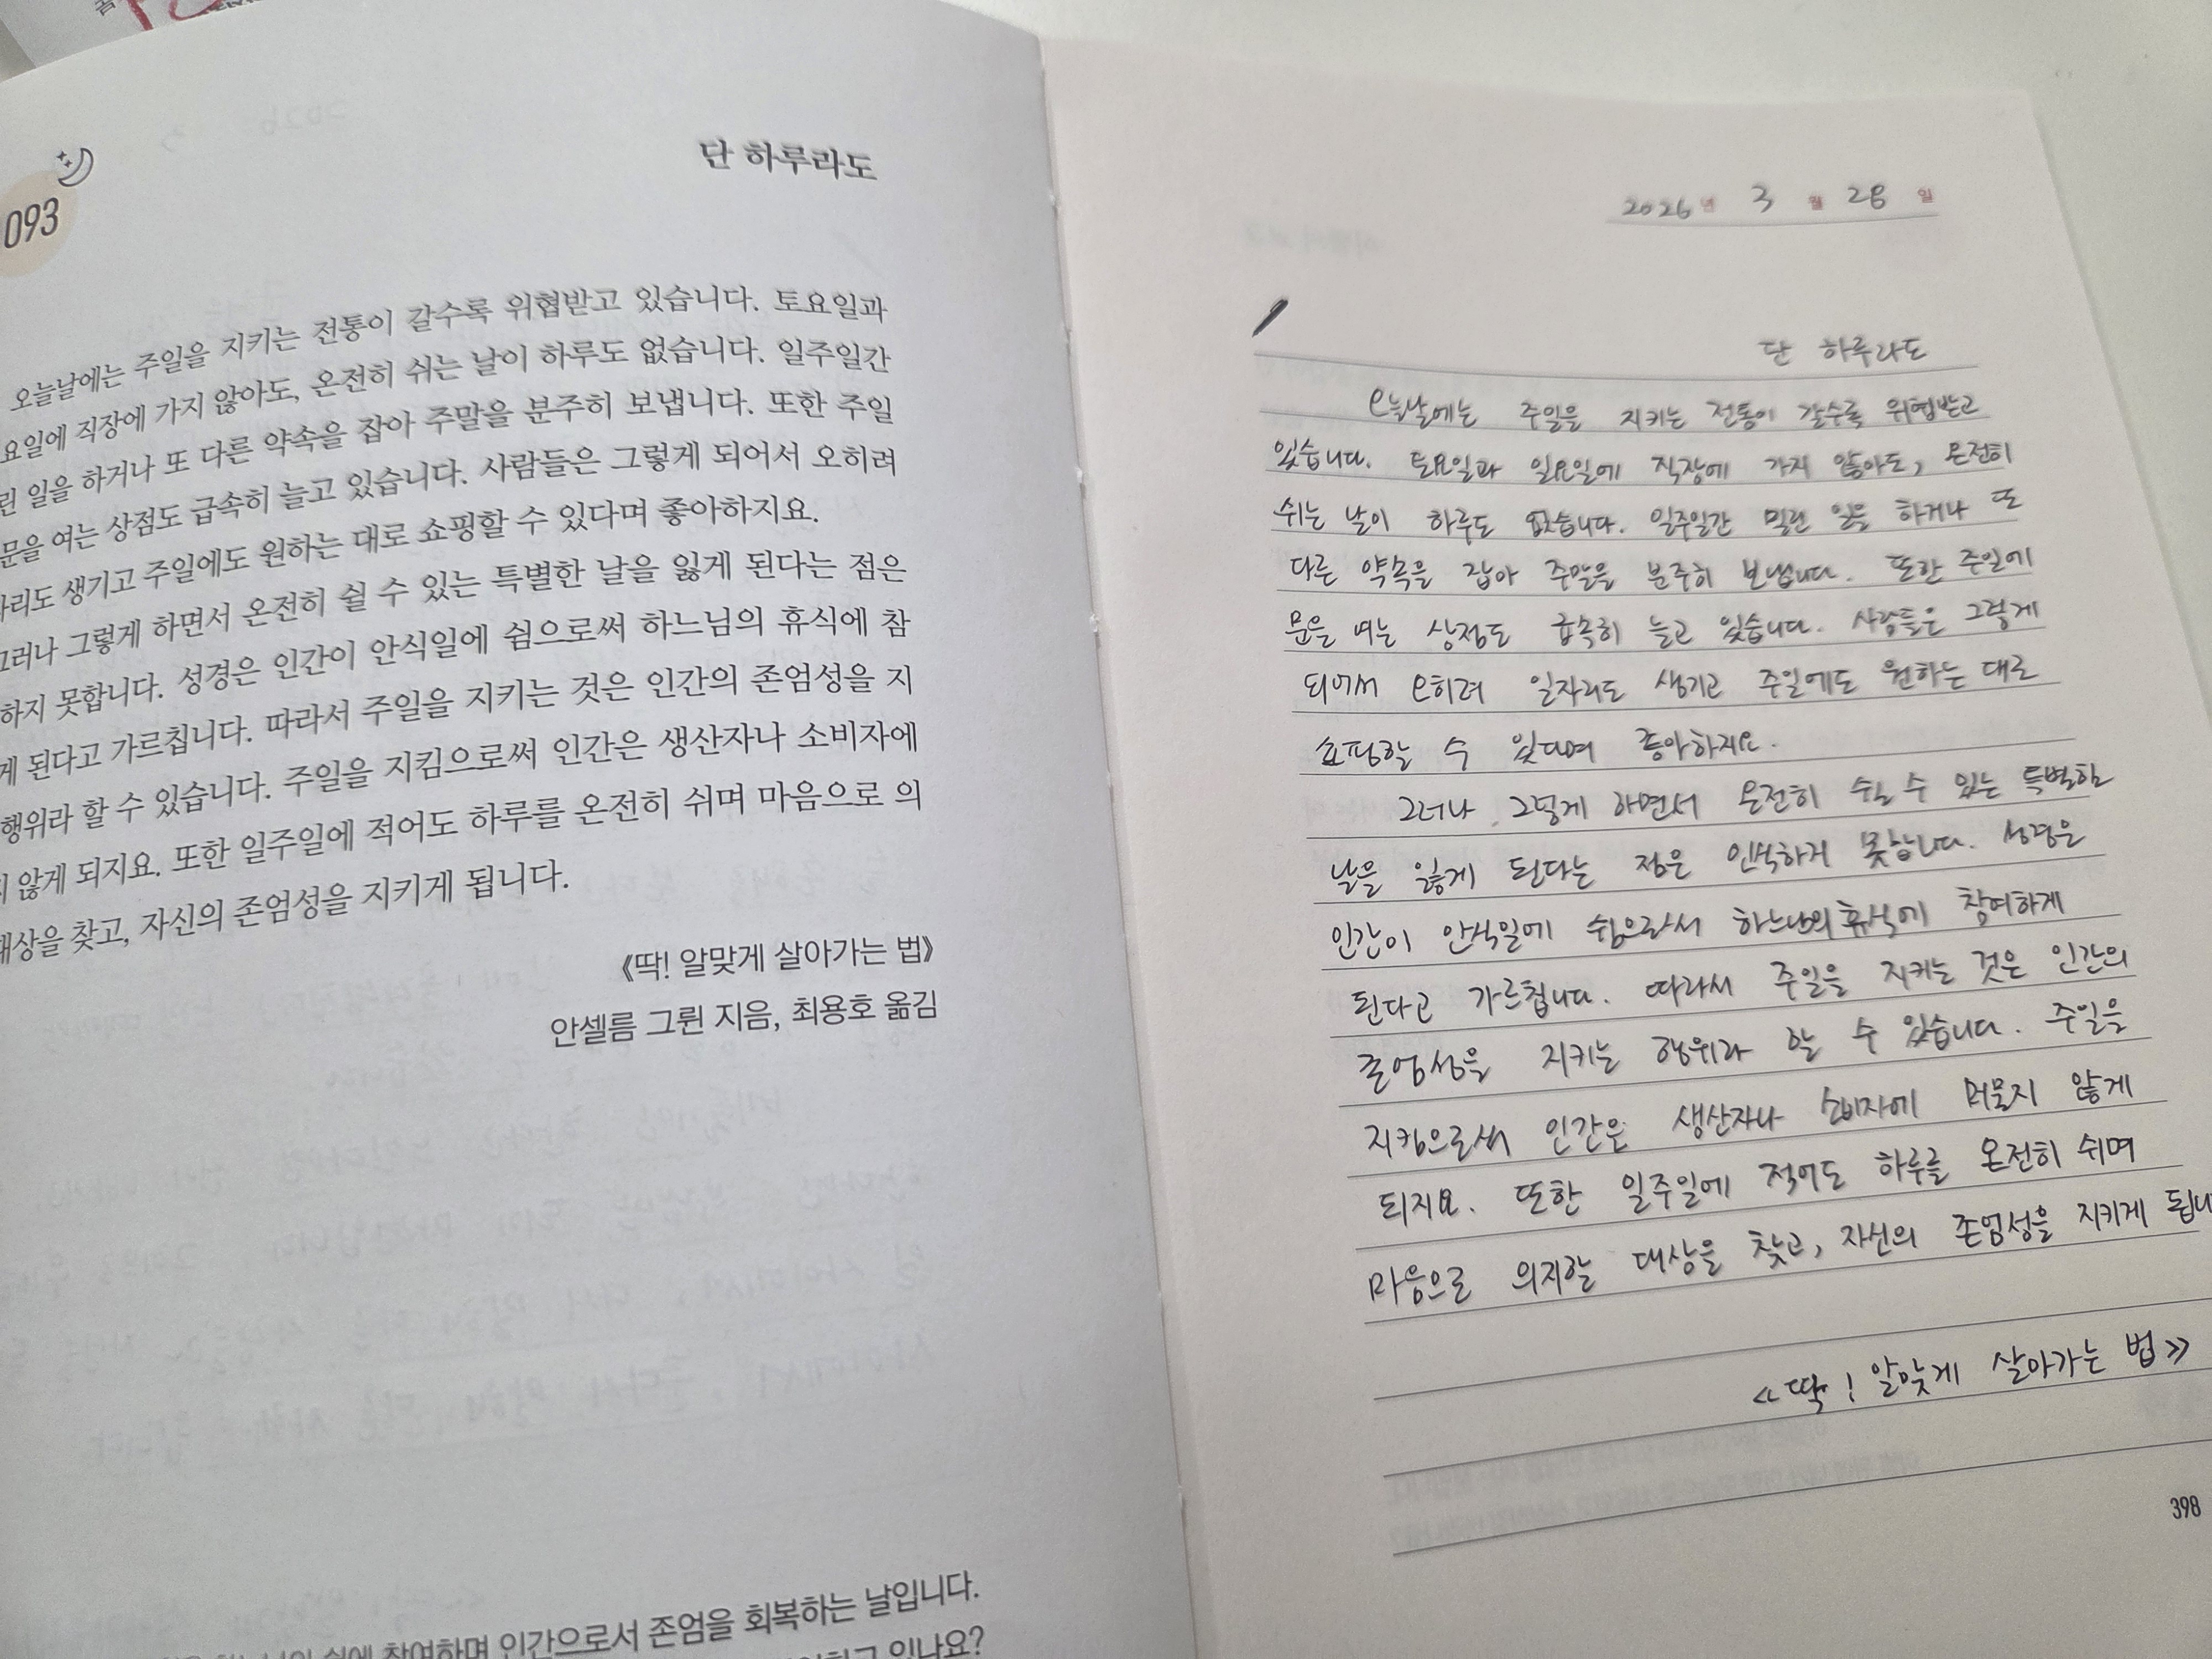 093
단 하루라도
오늘날에는 주일을 지키는 전통이 갈수록 위협받고 있습니다. 토요일과
요일에 직장에 가지 않아도, 온전히 쉬는 날이 하루도 없습니다. 일주일간
린 일을 하거나 또 다른 약속을 잡아 주말을 분주히 보냅니다. 또한 주일
문을 여는 상점도 급속히 늘고 있습니다. 사람들은 그렇게 되어서 오히려
자리도 생기고 주일에도 원하는 대로 쇼핑할 수 있다며 좋아하지요.
그러나 그렇게 하면서 온전히 쉴 수 있는 특별한 날을 잃게 된다는 점은
하지 못합니다. 성경은 인간이 안식일에 쉼으로써 하느님의 휴식에 참
게 된다고 가르칩니다. 따라서 주일을 지키는 것은 인간의 존엄성을 지
행위라 할 수 있습니다. 주일을 지킴으로써 인간은 생산자나 소비자에
지 않게 되지요. 또한 일주일에 적어도 하루를 온전히 쉬며 마음으로 의
대상을 찾고, 자신의 존엄성을 지키게 됩니다.
《딱! 알맞게 살아가는 법》
안셀름 그륀 지음, 최용호 옮김
쉼에 참여하며 인간으로서 존엄을 회복하는 날입니다.
있나요?
2026년 3월 28일
단 하루라도
오늘날에는 주일을 지키는 전통이 갈수록 위협받고
있습니다. 토요일과 일요일에 직장에 가지 않아도, 온전히
쉬는 날이 하루도 없습니다. 일주일간 밀린 일을 하거나 또
다른 약속을 잡아 주말을 분주히 보냅니다. 또한 주일에
문을 여는 상점도 급속히 늘고 있습니다. 사람들은 그렇게
되어서 오히려 일자리도 생기고 주일에도 원하는 대로
쇼핑할 수 있다며 좋아하지요.
그러나 그렇게 하면서 온전히 쉴 수 있는 특별한
날을 잃게 된다는 점은 인식하지 못합니다. 성경은
인간이 안식일에 쉼으로써 하느님의 휴식에 참여하게
된다고 가르칩니다. 따라서 주일을 지키는 것은 인간의
존엄성을 지키는 행위라 할 수 있습니다. 주일을
지킴으로써 인간은 생산자나 소비자에 머물지 않게
되지요. 또한 일주일에 적어도 하루를 온전히 쉬며
마음으로 의지할 대상을 찾고, 자신의 존엄성을 지키게 됩니
《딱! 알맞게 살아가는 법》
398